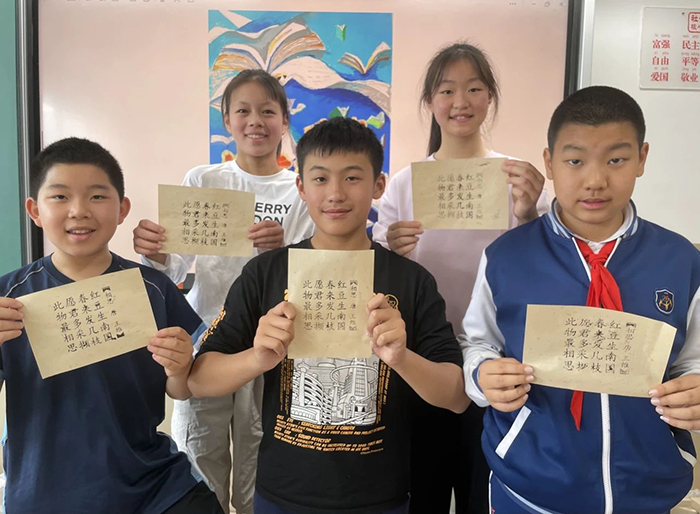 富强 民主
自由 平等
爱国 敬业
相思 唐 王维
红豆生南国
春来发几枝
愿君多采撷
此物最相思
相思 唐 王维
红豆生南国
春来发几枝
愿君多采撷
此物最相思
红豆生南国
春来发几枝
愿君多采撷
此物最相思
相思 唐 王维
红豆生南国
春来发几枝
愿君多采撷
此物最相思
相思 唐 王维
红豆生南国
春来发几枝
愿君多采撷
此物最相思
ERRY
DON
SOUND DETECTOR